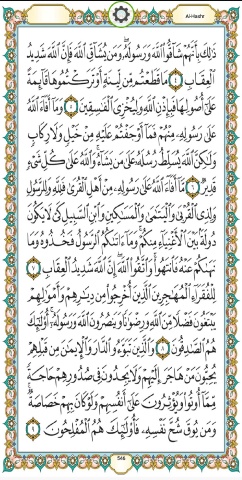 Al-Hashr
ذَٰلِكَ بِأَنَّهُمْ شَاقُّوا۟ ٱللَّهَ وَرَسُولَهُۥ وَمَن يُشَآقِّ ٱللَّهَ فَإِنَّ ٱللَّهَ شَدِيدُ
ٱلْعِقَابِ ٤ مَا قَطَعْتُم مِّن لِّينَةٍ أَوْ تَرَكْتُمُوهَا قَآئِمَةً
عَلَىٰٓ أُصُولِهَا فَبِإِذْنِ ٱللَّهِ وَلِيُخْزِىَ ٱلْفَـٰسِقِينَ ٥ وَمَآ أَفَآءَ ٱللَّهُ
عَلَىٰ رَسُولِهِۦ مِنْهُمْ فَمَآ أَوْجَفْتُمْ عَلَيْهِ مِنْ خَيْلٍ وَلَا رِكَابٍ
وَلَـٰكِنَّ ٱللَّهَ يُسَلِّطُ رُسُلَهُۥ عَلَىٰ مَن يَشَآءُ وَٱللَّهُ عَلَىٰ كُلِّ شَىْءٍ
قَدِيرٌ ٦ مَّآ أَفَآءَ ٱللَّهُ عَلَىٰ رَسُولِهِۦ مِنْ أَهْلِ ٱلْقُرَىٰ فَلِلَّهِ وَلِلرَّسُولِ
وَلِذِى ٱلْقُرْبَىٰ وَٱلْيَتَـٰمَىٰ وَٱلْمَسَـٰكِينِ وَٱبْنِ ٱلسَّبِيلِ كَىْ لَا يَكُونَ
دُولَةًۢ بَيْنَ ٱلْأَغْنِيَآءِ مِنكُمْ وَمَآ ءَاتَىٰكُمُ ٱلرَّسُولُ فَخُذُوهُ وَمَا
نَهَىٰكُمْ عَنْهُ فَٱنتَهُوا۟ وَٱتَّقُوا۟ ٱللَّهَ إِنَّ ٱللَّهَ شَدِيدُ ٱلْعِقَابِ ٧
لِلْفُقَرَآءِ ٱلْمُهَـٰجِرِينَ ٱلَّذِينَ أُخْرِجُوا۟ مِن دِيَـٰرِهِمْ وَأَمْوَٰلِهِمْ
يَبْتَغُونَ فَضْلًا مِّنَ ٱللَّهِ وَرِضْوَٰنًا وَيَنصُرُونَ ٱللَّهَ وَرَسُولَهُۥٓ أُو۟لَـٰٓئِكَ
هُمُ ٱلصَّـٰدِقُونَ ٨ وَٱلَّذِينَ تَبَوَّءُو ٱلدَّارَ وَٱلْإِيمَـٰنَ مِن قَبْلِهِمْ
يُحِبُّونَ مَنْ هَاجَرَ إِلَيْهِمْ وَلَا يَجِدُونَ فِى صُدُورِهِمْ حَاجَةً
مِّمَّآ أُوتُوا۟ وَيُؤْثِرُونَ عَلَىٰٓ أَنفُسِهِمْ وَلَوْ كَانَ بِهِمْ خَصَاصَةٌ
وَمَن يُوقَ شُحَّ نَفْسِهِۦ فَأُو۟لَـٰٓئِكَ هُمُ ٱلْمُفْلِحُونَ ٩
546